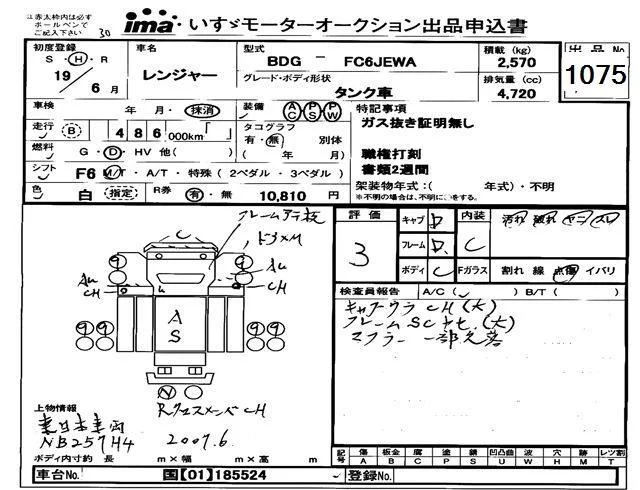 注赤太枠内は必ず
ボールペンで
ご記入下さい
30
ima いすゞモーターオークション出品申込書
初度登録 S・H・R 19年 6月
車名 レンジャー
型式 BDG － FC6JEWA
グレード・ボディ形状 タンク車
積載 (kg) 2,570
排気量 (cc) 4,720
出品No.
1075
車検 年 月・抹消
装備 AC PS PW
特記事項
ガス抜き証明無し
走行 B 486,000km「 」
タコグラフ 有・無 別体
( 年 月)
職権打刻
書類2週間
燃料 G・D・HV 他( )
シフト F6 M/T・A/T・特殊 (2ペダル・3ペダル)
架装物年式:( 年式)・不明
※不明の場合は、不明に○をする。
色 白 (指定) R券 有・無 10,810 円
フレームアテ板
評価 3
キャブ D
フレーム D
ボディ C
内装 C
Fガラス 割れ 線 点傷 イバリ
検査員報告 A/C( ) B/T( )
キャブウラCH(大)
マフラー一部欠落
C
9 9
Aω
CH
A
S
99 99
N
上物情報
東日本車両
NB257H4 2007.6
ボディ内寸約 長 m×幅 m×高 m
記号 傷 板金 腐 塗 錆 凹凸曲 波 穴 レツ割
A B C P S U W H M T
車台No. 国[01]185524
登録No.